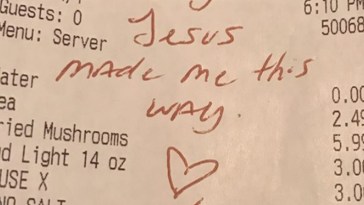 Guests: 0
6:10 PM
Menu: Server
50068
Jesus
made me this
way.
ater
0.00
ea
2.49
ried Mushrooms
5.99
d Light 14 oz
3.00
USE X
3.0